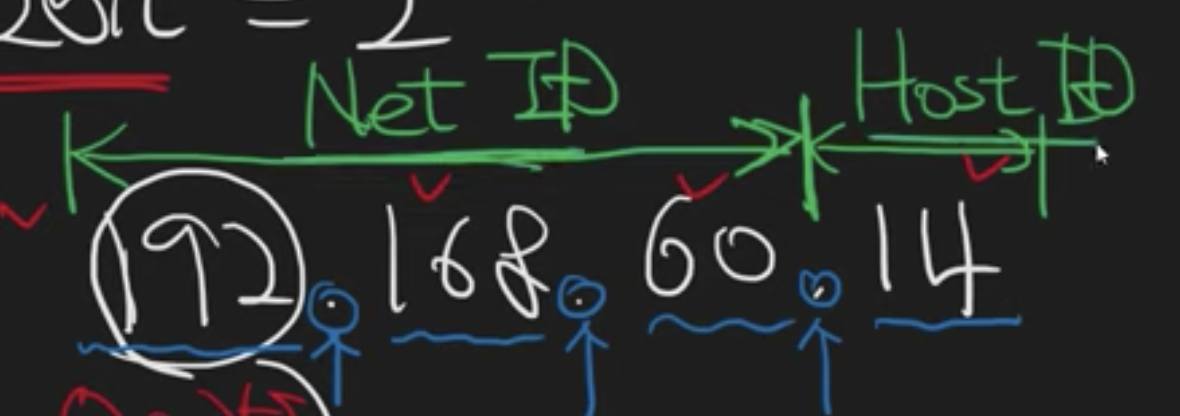 Net ID Host ID
192 . 168 . 60 . 14